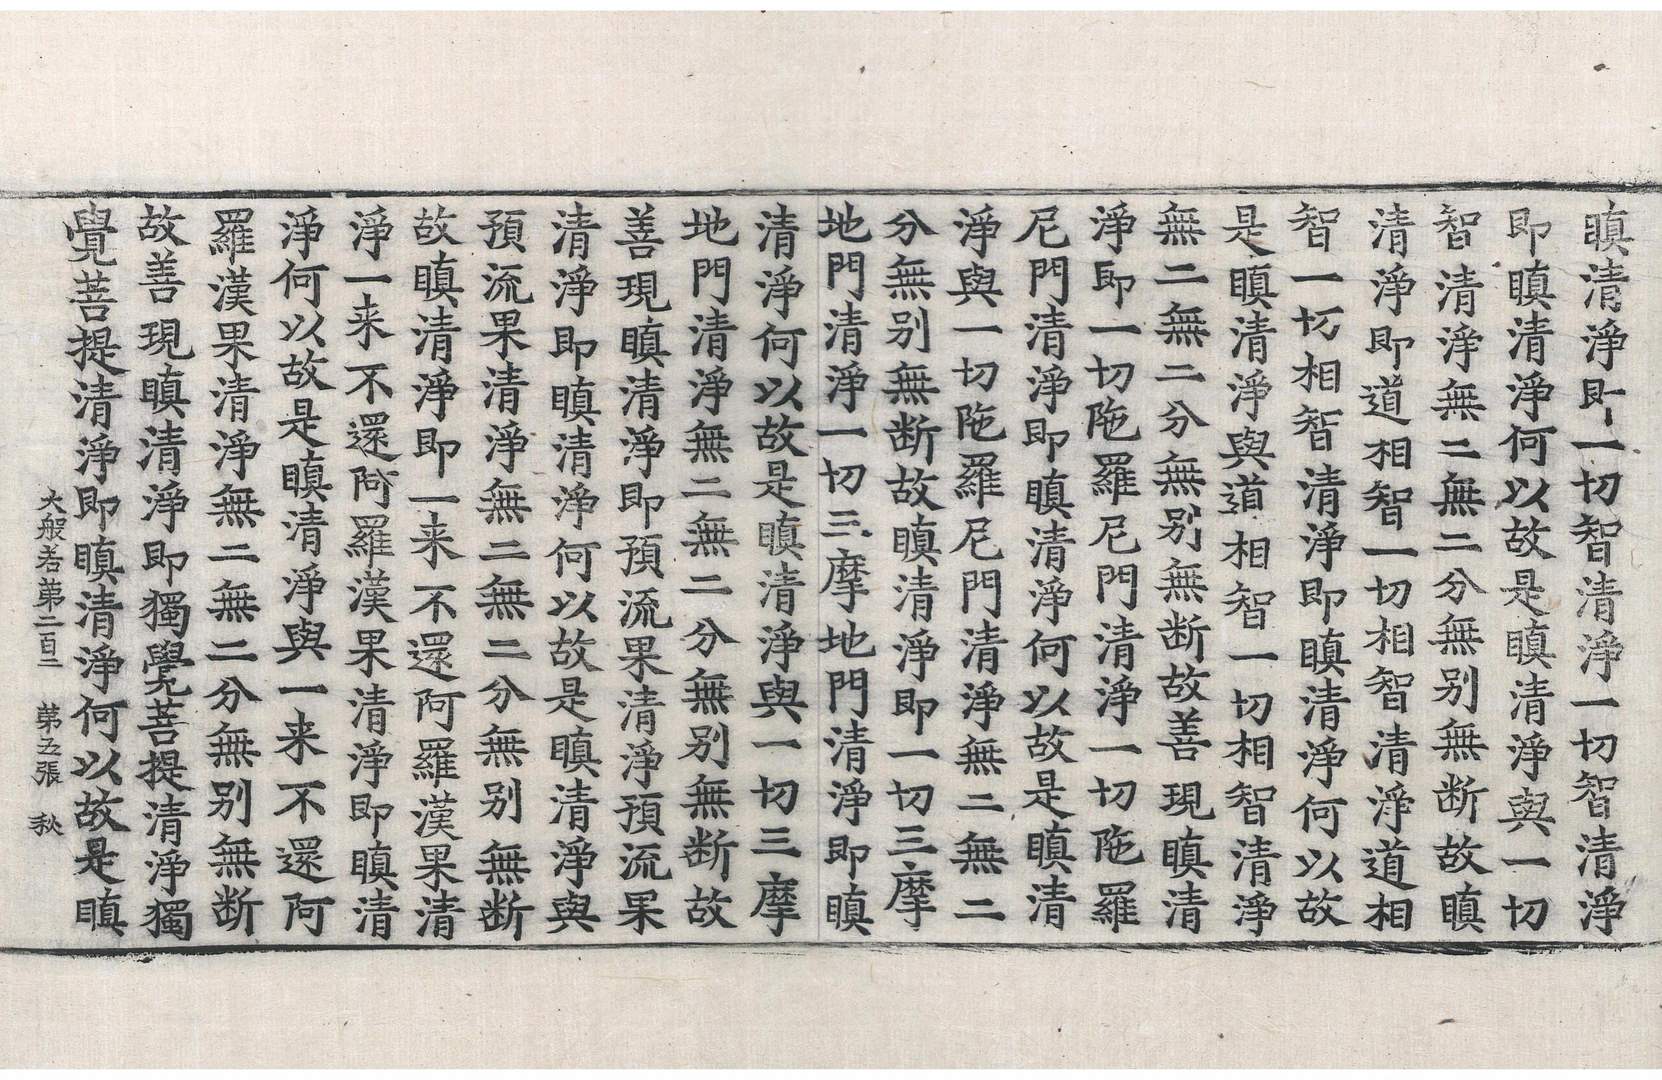 瞋清淨即一切智清淨一切智清淨
即瞋清淨何以故是瞋清淨與一切
智清淨無二無二分無別無断故瞋
清淨即道相智一切相智清淨道相
智一切相智清淨即瞋清淨何以故
是瞋清淨與道相智一切相智清淨
無二無二分無別無断故善現瞋清
淨即一切陁羅尼門清淨一切陁羅
尼門清淨即瞋清淨何以故是瞋清
淨與一切陁羅尼門清淨無二無二
分無別無断故瞋清淨即一切三摩
地門清淨一切三摩地門清淨即瞋
清淨何以故是瞋清淨與一切三摩
地門清淨無二無二分無別無断故
善現瞋清淨即預流果清淨預流果
清淨即瞋清淨何以故是瞋清淨與
預流果清淨無二無二分無別無断
故瞋清淨即一来不還阿羅漢果清
淨一来不還阿羅漢果清淨即瞋清
淨何以故是瞋清淨與一来不還阿
羅漢果清淨無二無二分無別無断
故善現瞋清淨即獨覺菩提清淨獨
覺菩提清淨即瞋清淨何以故是瞋
大般若第二百二 第五張 秋